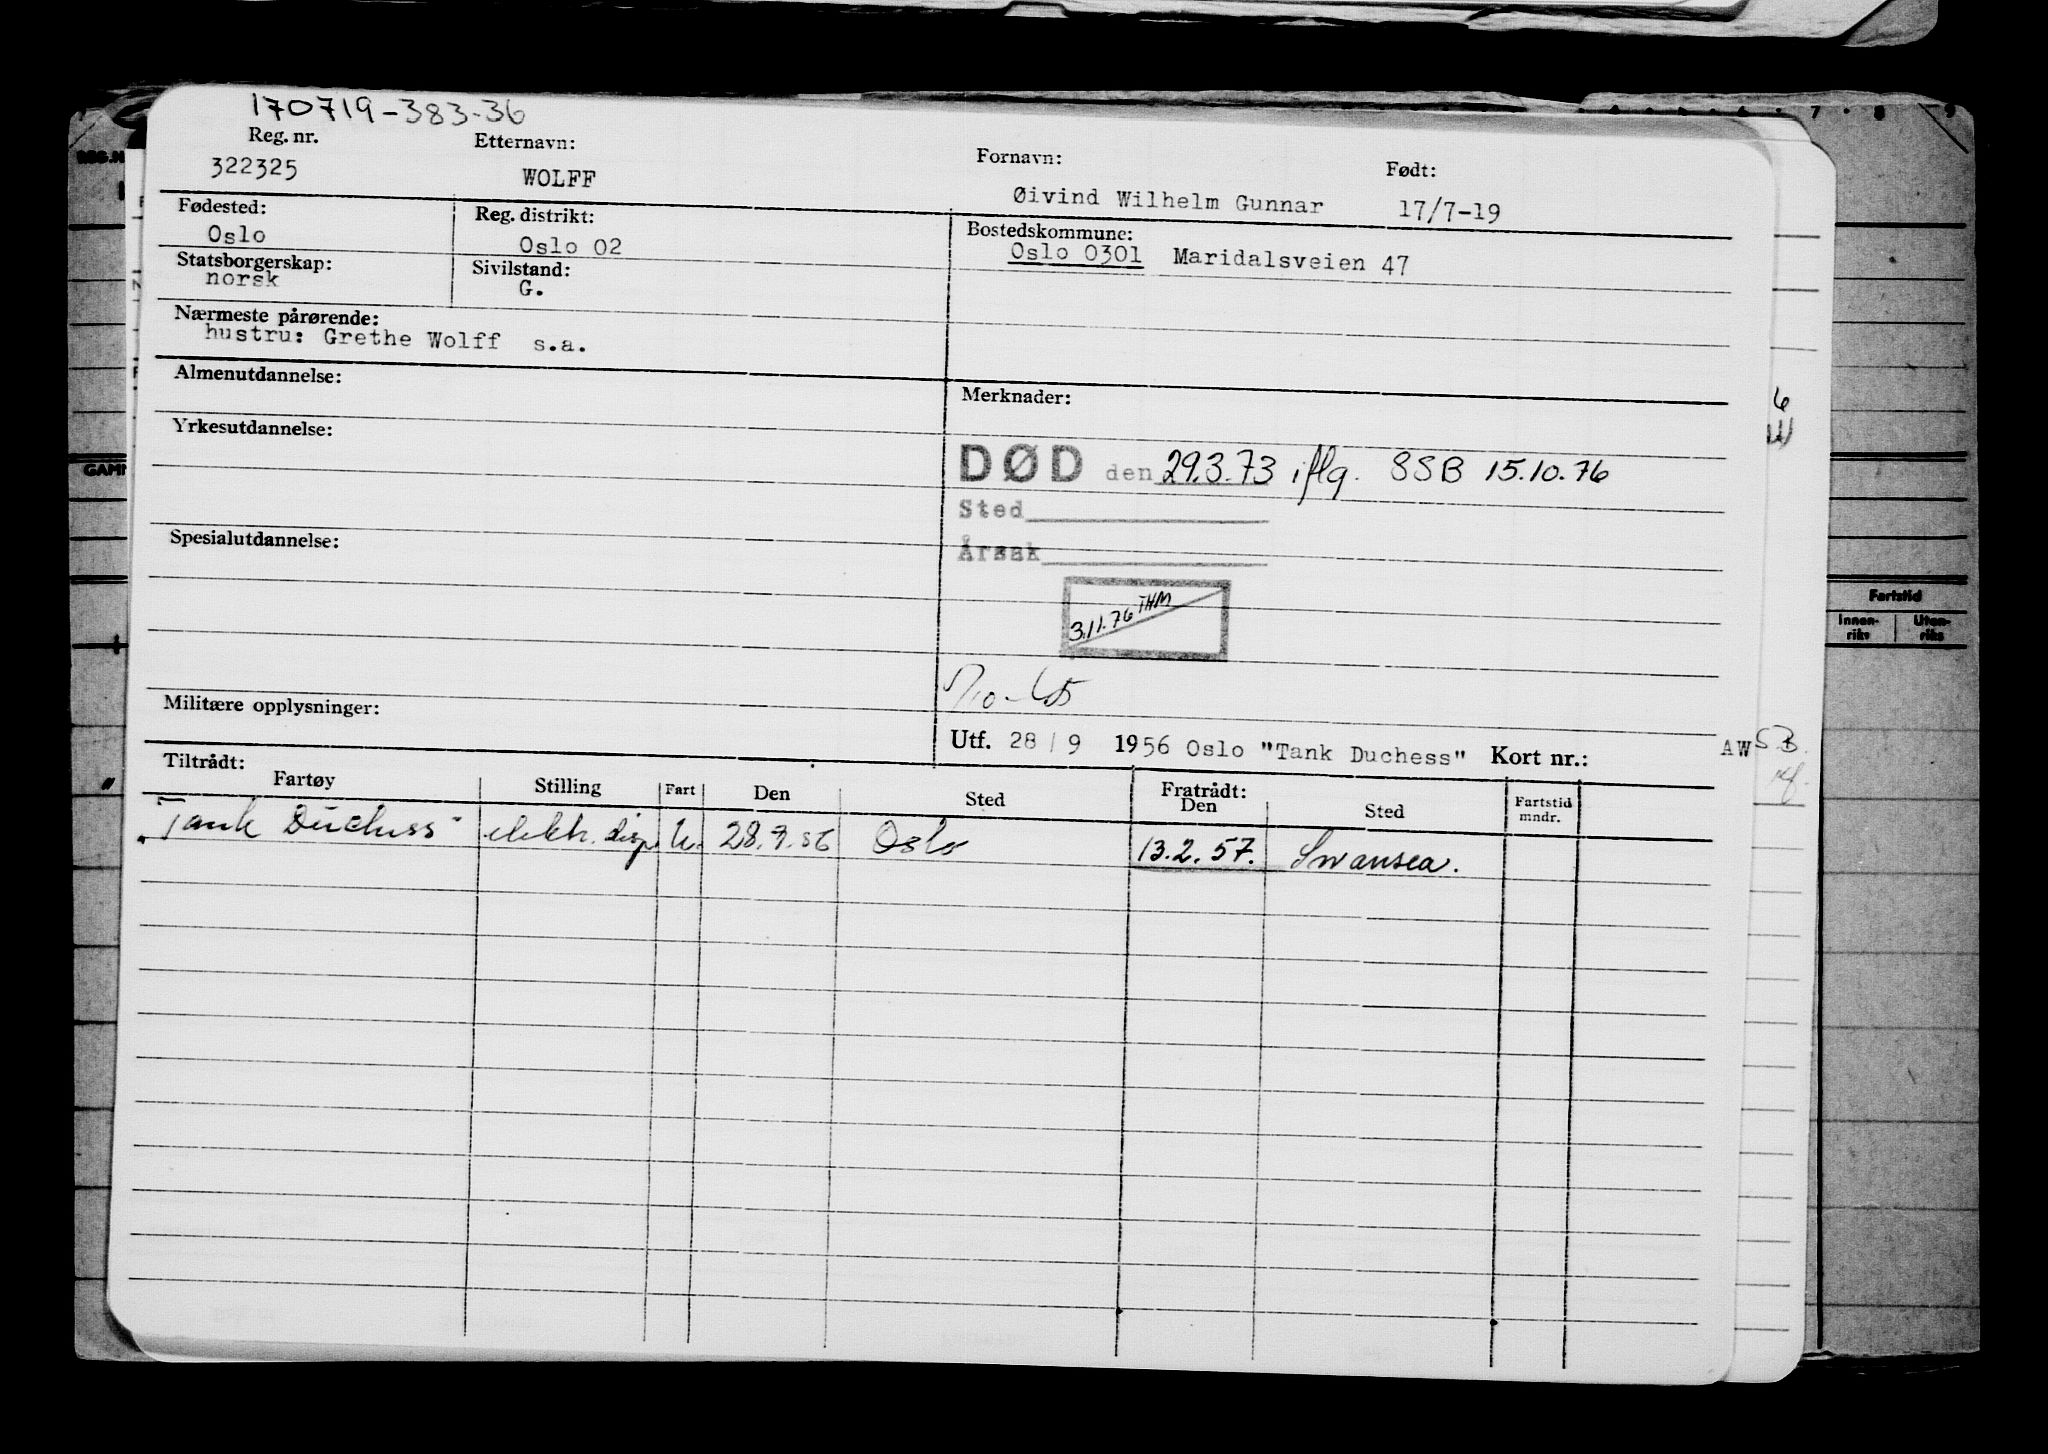 170719-383-36
Reg. nr. Etternavn: Fornavn: Født:
322325 WOLFF Øivind Wilhelm Gunnar 17/7-19
Fødested: Reg. distrikt: Bostedskommune:
Oslo Oslo 02 Oslo 0301 Maridalsveien 47
Statsborgerskap: Sivilstand:
norsk G.
Nærmeste pårørende:
hustru: Grethe Wolff s.a.
Almenutdannelse: Merknader:
Yrkesutdannelse:
DØD den 29.3.73 iflg. SSB 15.10.76
Sted
Årsak
Spesialutdannelse:
3.11.76 THM
Militære opplysninger:
Utf. 28/9 1956 Oslo "Tank Duchess" Kort nr.: AW
Tiltrådt: Fratrådt:
Fartøy Stilling Fart Den Sted Den Sted Fartstid mndr.
"Tank Duchess" elektr. disp. U. 28.9.56 Oslo 13.2.57. Swansea.
7 8 9
GAM
Fartstid
Innen-riks Uten-riks